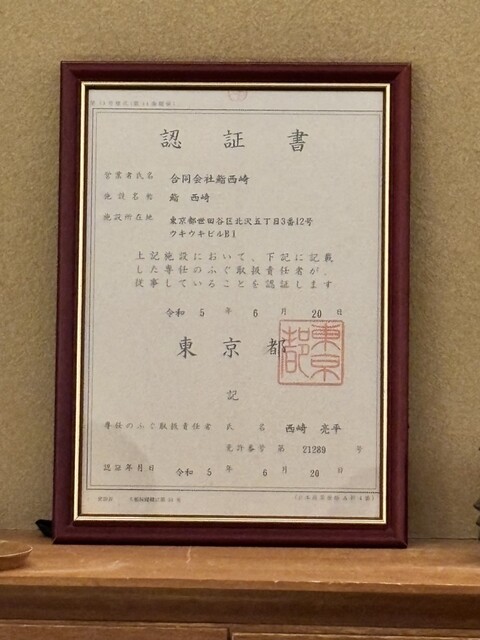 認証書
営業者氏名 合同会社鮨西崎
施設名称 鮨 西崎
施設所在地 東京都世田谷区北沢五丁目3番12号
ウキウキビルB1
上記施設において、下記に記載
した専任のふぐ取扱責任者が、
従事していることを認証します
令和 5 年 6 月 20 日
東京都
東京都
記
専任のふぐ取扱責任者 氏名 西崎 亮平
免許番号 第 21289 号
認証年月日 令和 5 年 6 月 20 日